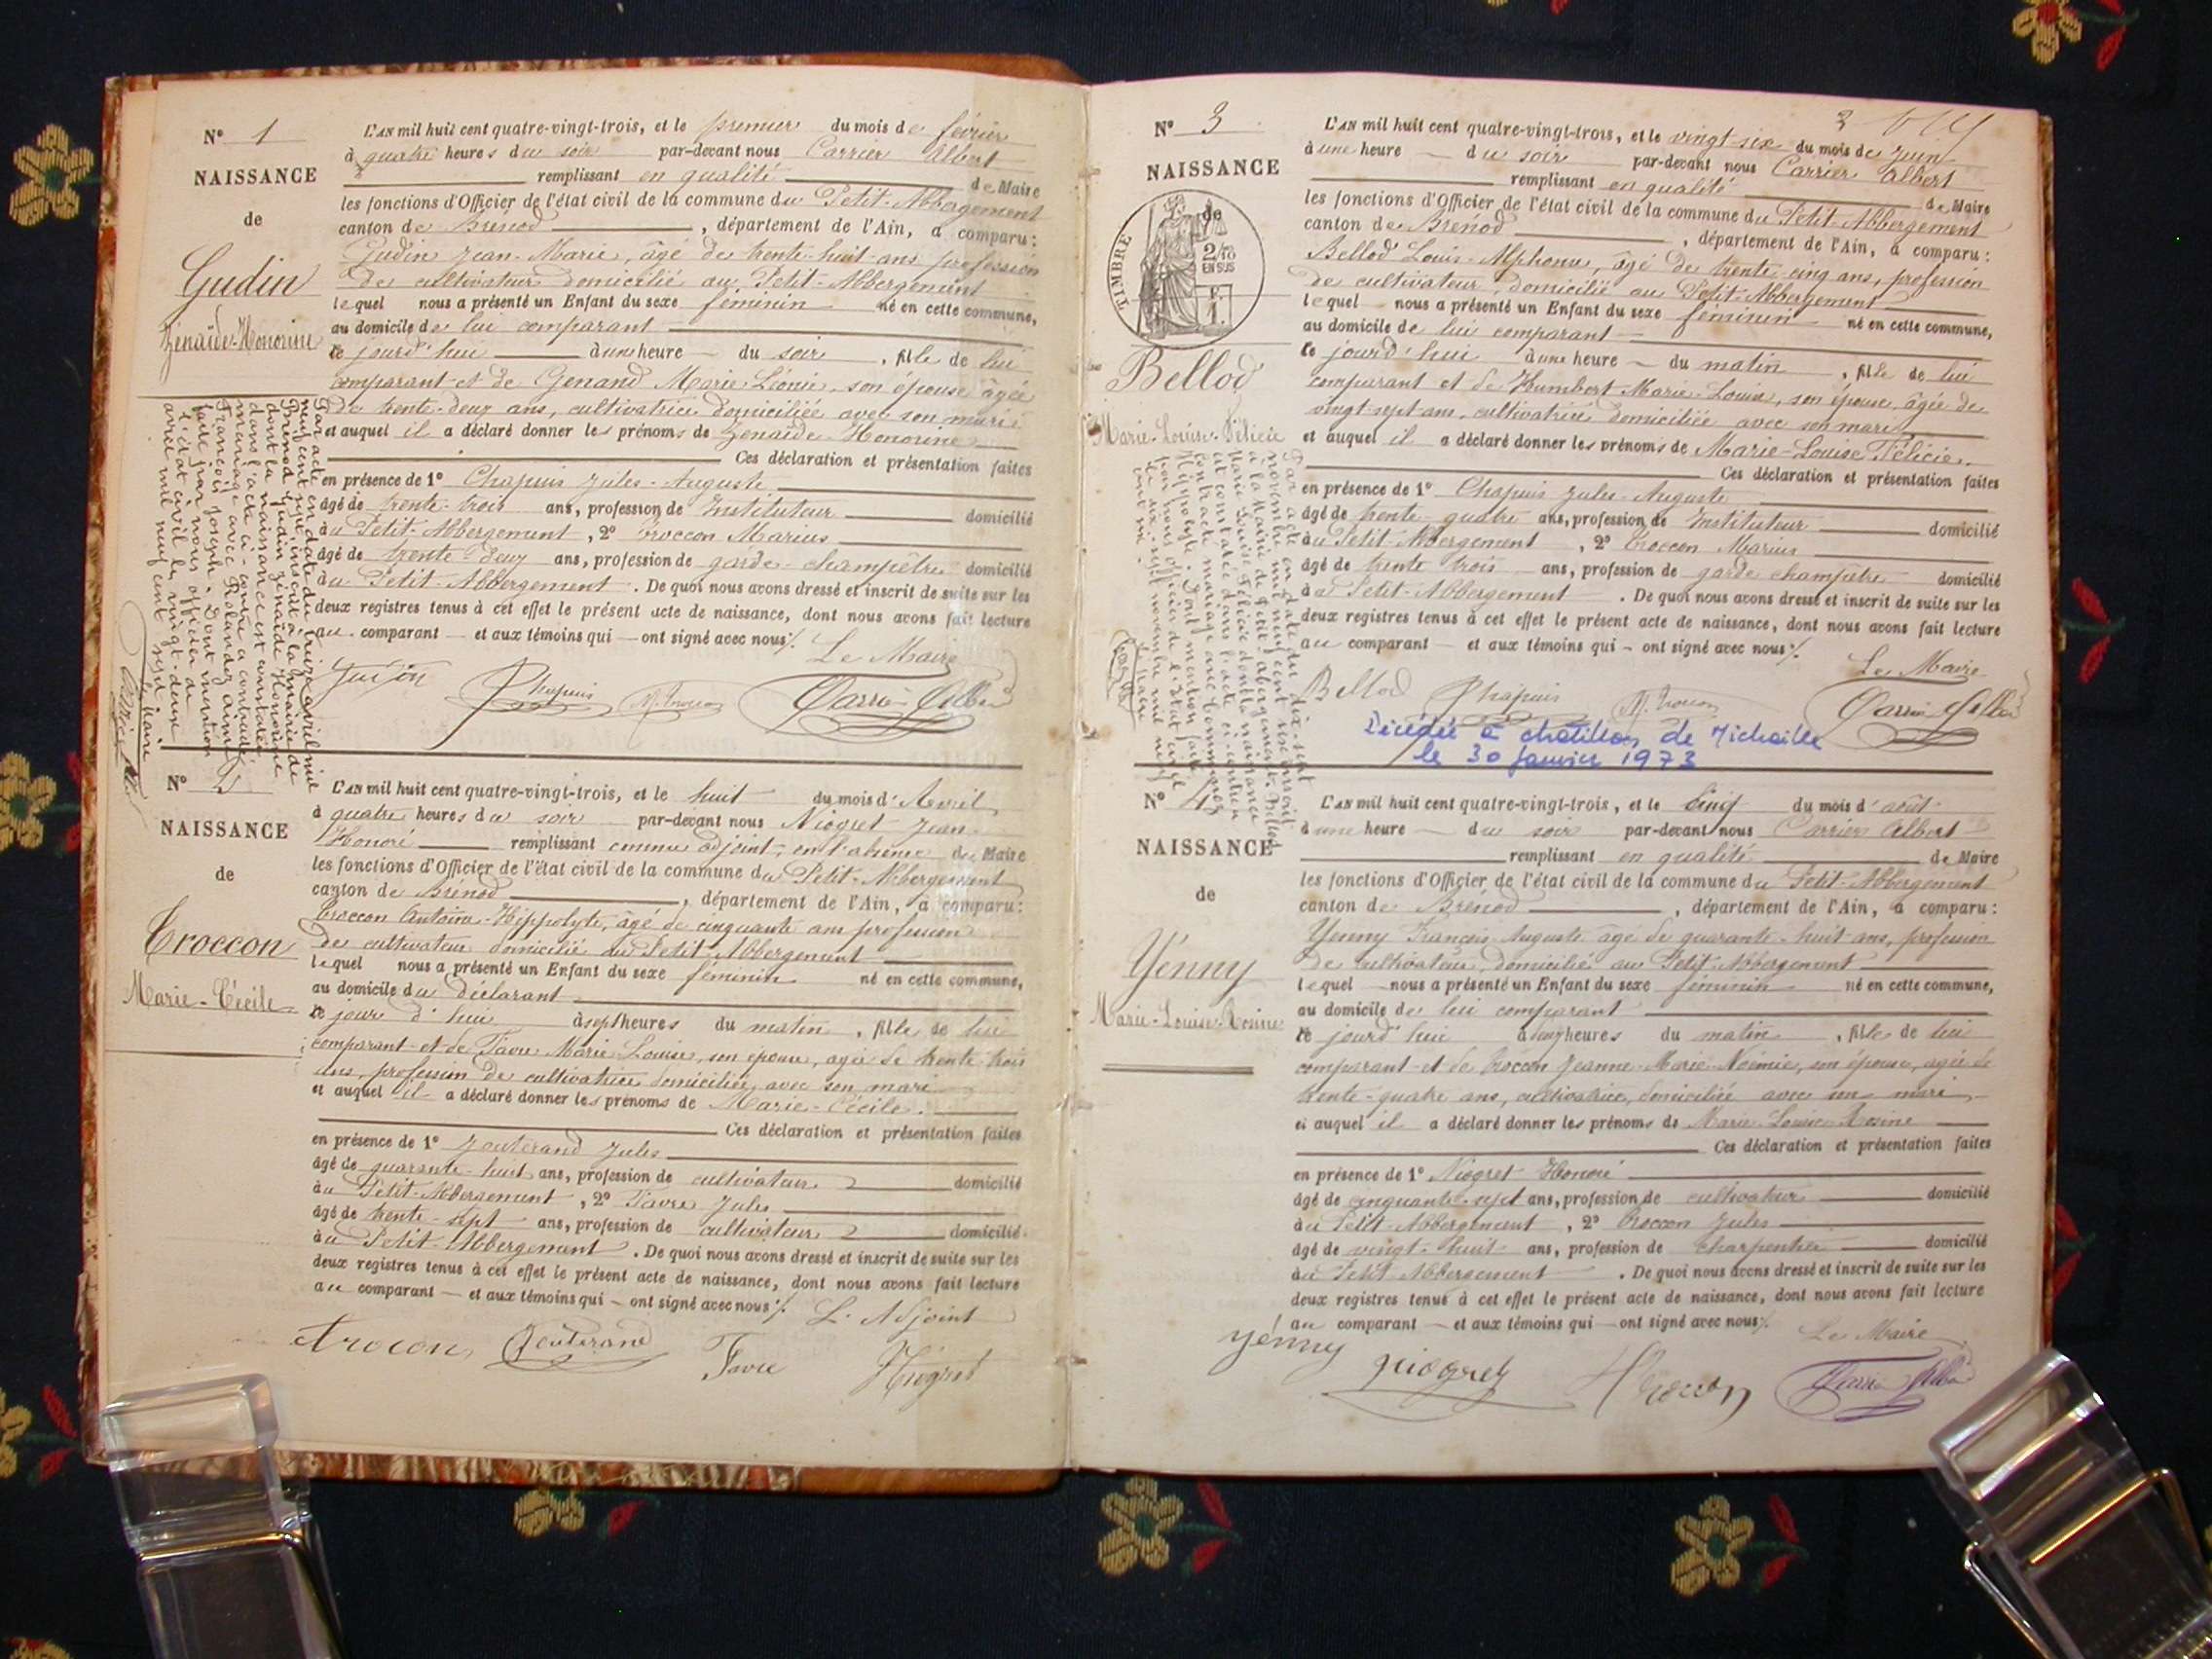 N° 1
NAISSANCE
de
Gudin
Zénaïde-Honorine
L'AN mil huit cent quatre-vingt-trois, et le premier du mois de février
à quatre heures du soir par-devant nous Carrier Albert
remplissant en qualité de Maire
les fonctions d'Officier de l'état civil de la commune du Petit-Abbergement
canton de Brénod, département de l'Ain, a comparu:
Gudin Jean-Marie, âgé de trente-huit ans profession
de cultivateur domicilié au Petit-Abbergement
lequel nous a présenté un Enfant du sexe féminin né en cette commune,
au domicile de lui comparant
ce jourd'hui à une heure du soir, fille de lui
comparant et de Genand Marie Léonie, son épouse âgée
de trente-deux ans, cultivatrice domiciliée avec son mari
et auquel il a déclaré donner les prénoms de Zénaïde-Honorine
Ces déclaration et présentation faites
en présence de 1° Chapuis Jules-Auguste
âgé de trente-trois ans, profession de Instituteur domicilié
au Petit-Abbergement, 2° Troccon Marius
âgé de trente-deux ans, profession de garde-champêtre domicilié
au Petit-Abbergement. De quoi nous avons dressé et inscrit de suite sur les
deux registres tenus à cet effet le présent acte de naissance, dont nous avons fait lecture
au comparant et aux témoins qui ont signé avec nous ./.
Le Maire
Gudin Chapuis M. Troccon Carrier Albert
Par acte en date du treize avril mil
neuf cent sept, inscrit à la mairie de
Brénod, Gudin Zénaïde Honorine
dont la naissance est constatée
dans l'acte ci-contre a contracté
mariage avec Rolandez aimé
François Joseph. Dont mention
faite par nous officier de
l'état civil le vingt-deux
avril mil neuf cent sept
Le Maire
N° 2
NAISSANCE
de
Troccon
Marie-Cécile
L'AN mil huit cent quatre-vingt-trois, et le huit du mois d'Avril
à quatre heures du soir par-devant nous Niogret Jean
Honoré remplissant comme adjoint, en l'absence du Maire
les fonctions d'Officier de l'état civil de la commune du Petit-Abbergement
canton de Brénod, département de l'Ain, a comparu:
Troccon Antoine-Hippolyte, âgé de cinquante ans profession
de cultivateur domicilié au Petit-Abbergement
lequel nous a présenté un Enfant du sexe féminin né en cette commune,
au domicile du déclarant
ce jour d'hui à sept heures du matin, fille de lui
comparant et de Favre Marie Louise, son épouse, âgée de trente-trois
ans, profession de cultivatrice domiciliée avec son mari
et auquel il a déclaré donner les prénoms de Marie-Cécile.
Ces déclaration et présentation faites
en présence de 1° Jouterand Jules
âgé de quarante-huit ans, profession de cultivateur domicilié
au Petit-Abbergement, 2° Favre Jules
âgé de trente-sept ans, profession de cultivateur domicilié
au Petit-Abbergement. De quoi nous avons dressé et inscrit de suite sur les
deux registres tenus à cet effet le présent acte de naissance, dont nous avons fait lecture
au comparant et aux témoins qui ont signé avec nous ./. L'Adjoint
Trocon Jouterand Favre Niogret
N° 3
NAISSANCE
de
TIMBRE
2/10
EN SUS
Bellod
Marie-Louise-Félicie
3
L'AN mil huit cent quatre-vingt-trois, et le vingt-six du mois de juin
à une heure du soir par-devant nous Carrier Albert
remplissant en qualité de Maire
les fonctions d'Officier de l'état civil de la commune du Petit-Abbergement
canton de Brénod, département de l'Ain, a comparu:
Bellod Louis-Alphonse, âgé de trente-cinq ans, profession
de cultivateur, domicilié au Petit-Abbergement
lequel nous a présenté un Enfant du sexe féminin né en cette commune,
au domicile de lui comparant
ce jourd'hui à une heure du matin, fille de lui
comparant et de Humbert Marie-Louise, son épouse, âgée de
vingt-sept ans, cultivatrice domiciliée avec son mari
et auquel il a déclaré donner les prénoms de Marie-Louise Félicie.
Ces déclaration et présentation faites
en présence de 1° Chapuis Jules-Auguste
âgé de trente-quatre ans, profession de Instituteur domicilié
au Petit-Abbergement, 2° Troccon Marius
âgé de trente trois ans, profession de garde champêtre domicilié
au Petit-Abbergement. De quoi nous avons dressé et inscrit de suite sur les
deux registres tenus à cet effet le présent acte de naissance, dont nous avons fait lecture
au comparant et aux témoins qui ont signé avec nous ./.
Le Maire
Bellod Chapuis M. Troccon Carrier Albert
Décédée à Chatillon de Michaille
le 30 Janvier 1973
Par acte en date du dix-sept
novembre mil neuf cent
à la Mairie de Petit-abergement, Bellod
Marie Louise Félicie dont la naissance
est constatée dans l'acte ci-contre a
contracté mariage avec
Hippolyte. Dont mention faite
par nous officier de l'état civil
le dix-sept novembre mil neuf
cent
Le Maire
N° 4
NAISSANCE
de
Yénny
Marie-Louise-Rosine
L'AN mil huit cent quatre-vingt-trois, et le Cinq du mois d'août
à une heure du soir par-devant nous Carrier Albert
remplissant en qualité de Maire
les fonctions d'Officier de l'état civil de la commune du Petit-Abbergement
canton de Brénod, département de l'Ain, a comparu:
Yenny François Auguste âgé de quarante-huit ans, profession
de cultivateur, domicilié au Petit-Abbergement
lequel nous a présenté un Enfant du sexe féminin né en cette commune,
au domicile de lui comparant
ce jourd'hui à cinq heures du matin, fille de lui
comparant et de Troccon Jeanne-Marie-Noémie, son épouse, âgée de
trente-quatre ans, cultivatrice, domiciliée avec son mari
et auquel il a déclaré donner les prénoms de Marie-Louise-Rosine
Ces déclaration et présentation faites
en présence de 1° Niogret Honoré
âgé de cinquante-sept ans, profession de cultivateur domicilié
au Petit-Abbergement, 2° Troccon Jules
âgé de vingt-huit ans, profession de charpentier domicilié
au Petit Abbergement. De quoi nous avons dressé et inscrit de suite sur les
deux registres tenus à cet effet le présent acte de naissance, dont nous avons fait lecture
au comparant et aux témoins qui ont signé avec nous ./. Le Maire
yénny Niogret Troccon Carrier Albert